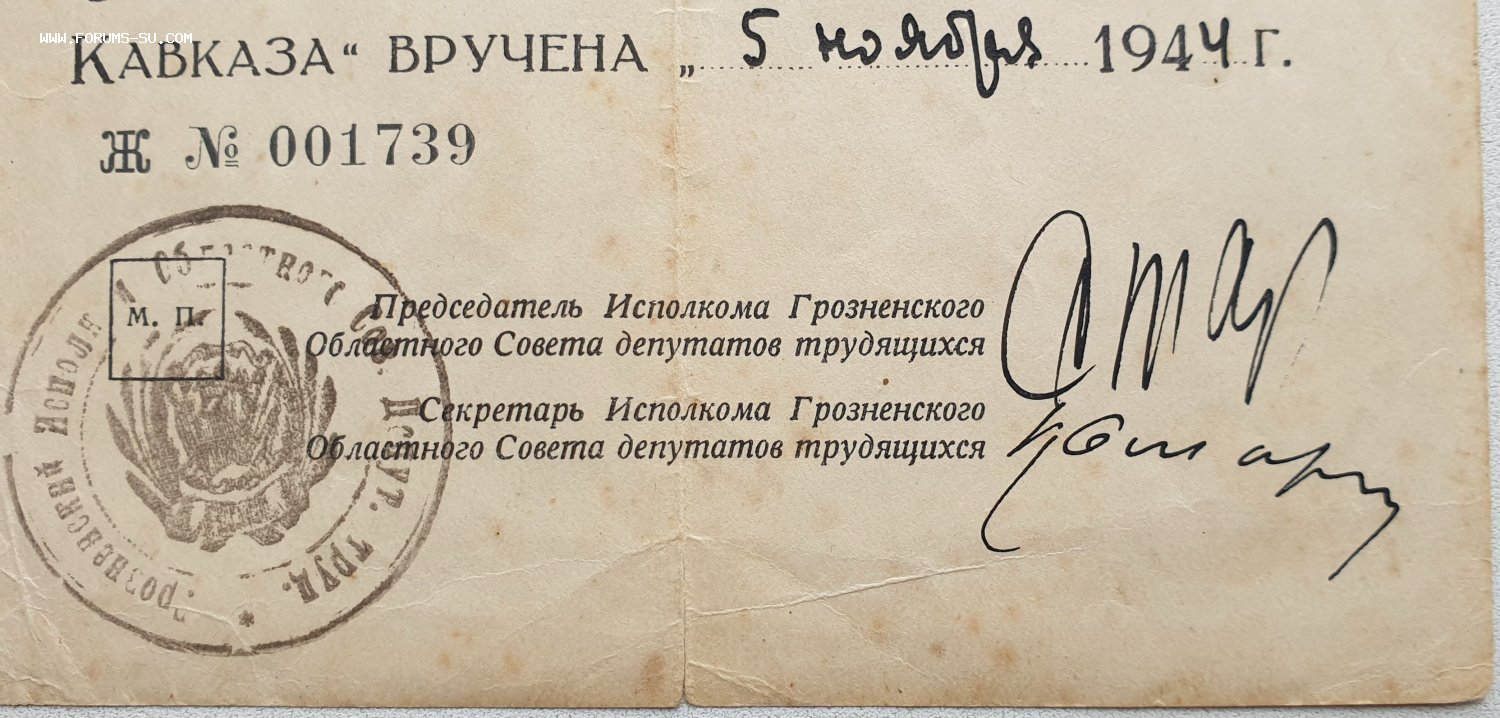 WWW.FORUMS-SU.COM
КАВКАЗА“ ВРУЧЕНА „ 5 ноября 1944 г.
Ж № 001739
М. П.
Председатель Исполкома Грозненского
Областного Совета депутатов трудящихся
Секретарь Исполкома Грозненского
Областного Совета депутатов трудящихся
Грозненский Исполн Областного Сов. Депут. Труд. *